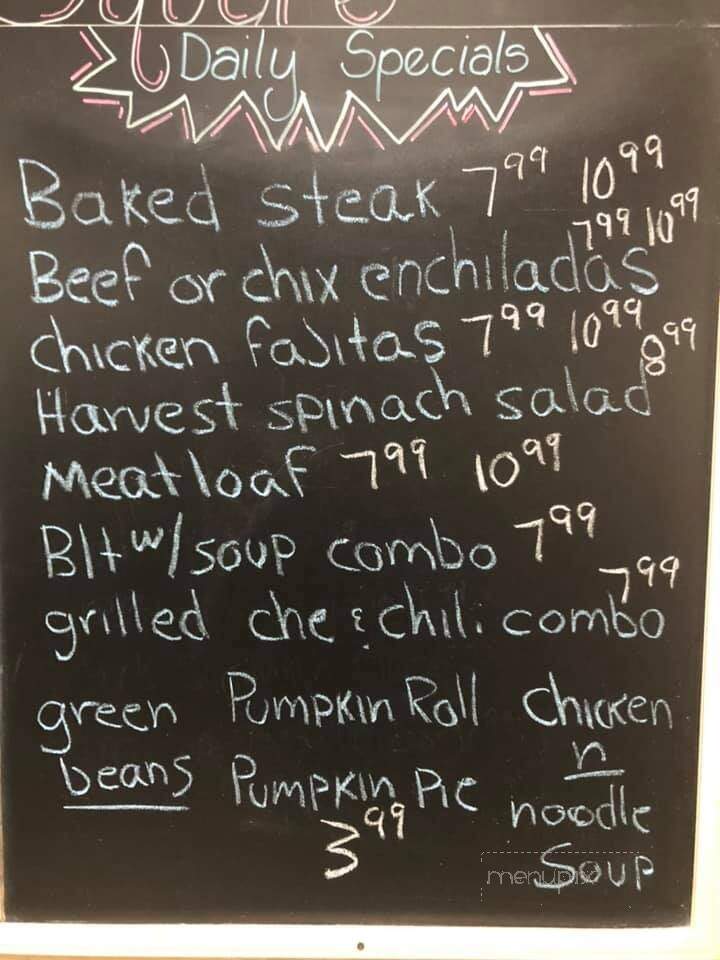 Square
Daily Specials
Baked steak 7.99 10.99
7.99 10.99
Beef or chix enchiladas
chicken fajitas 7.99 10.99
8.99
Harvest spinach salad
Meatloaf 7.99 10.99
Blt w/ soup combo 7.99
7.99
grilled che & chili combo
green Pumpkin Roll chicken
n
beans Pumpkin Pie noodle
3.99
Soup
menupix